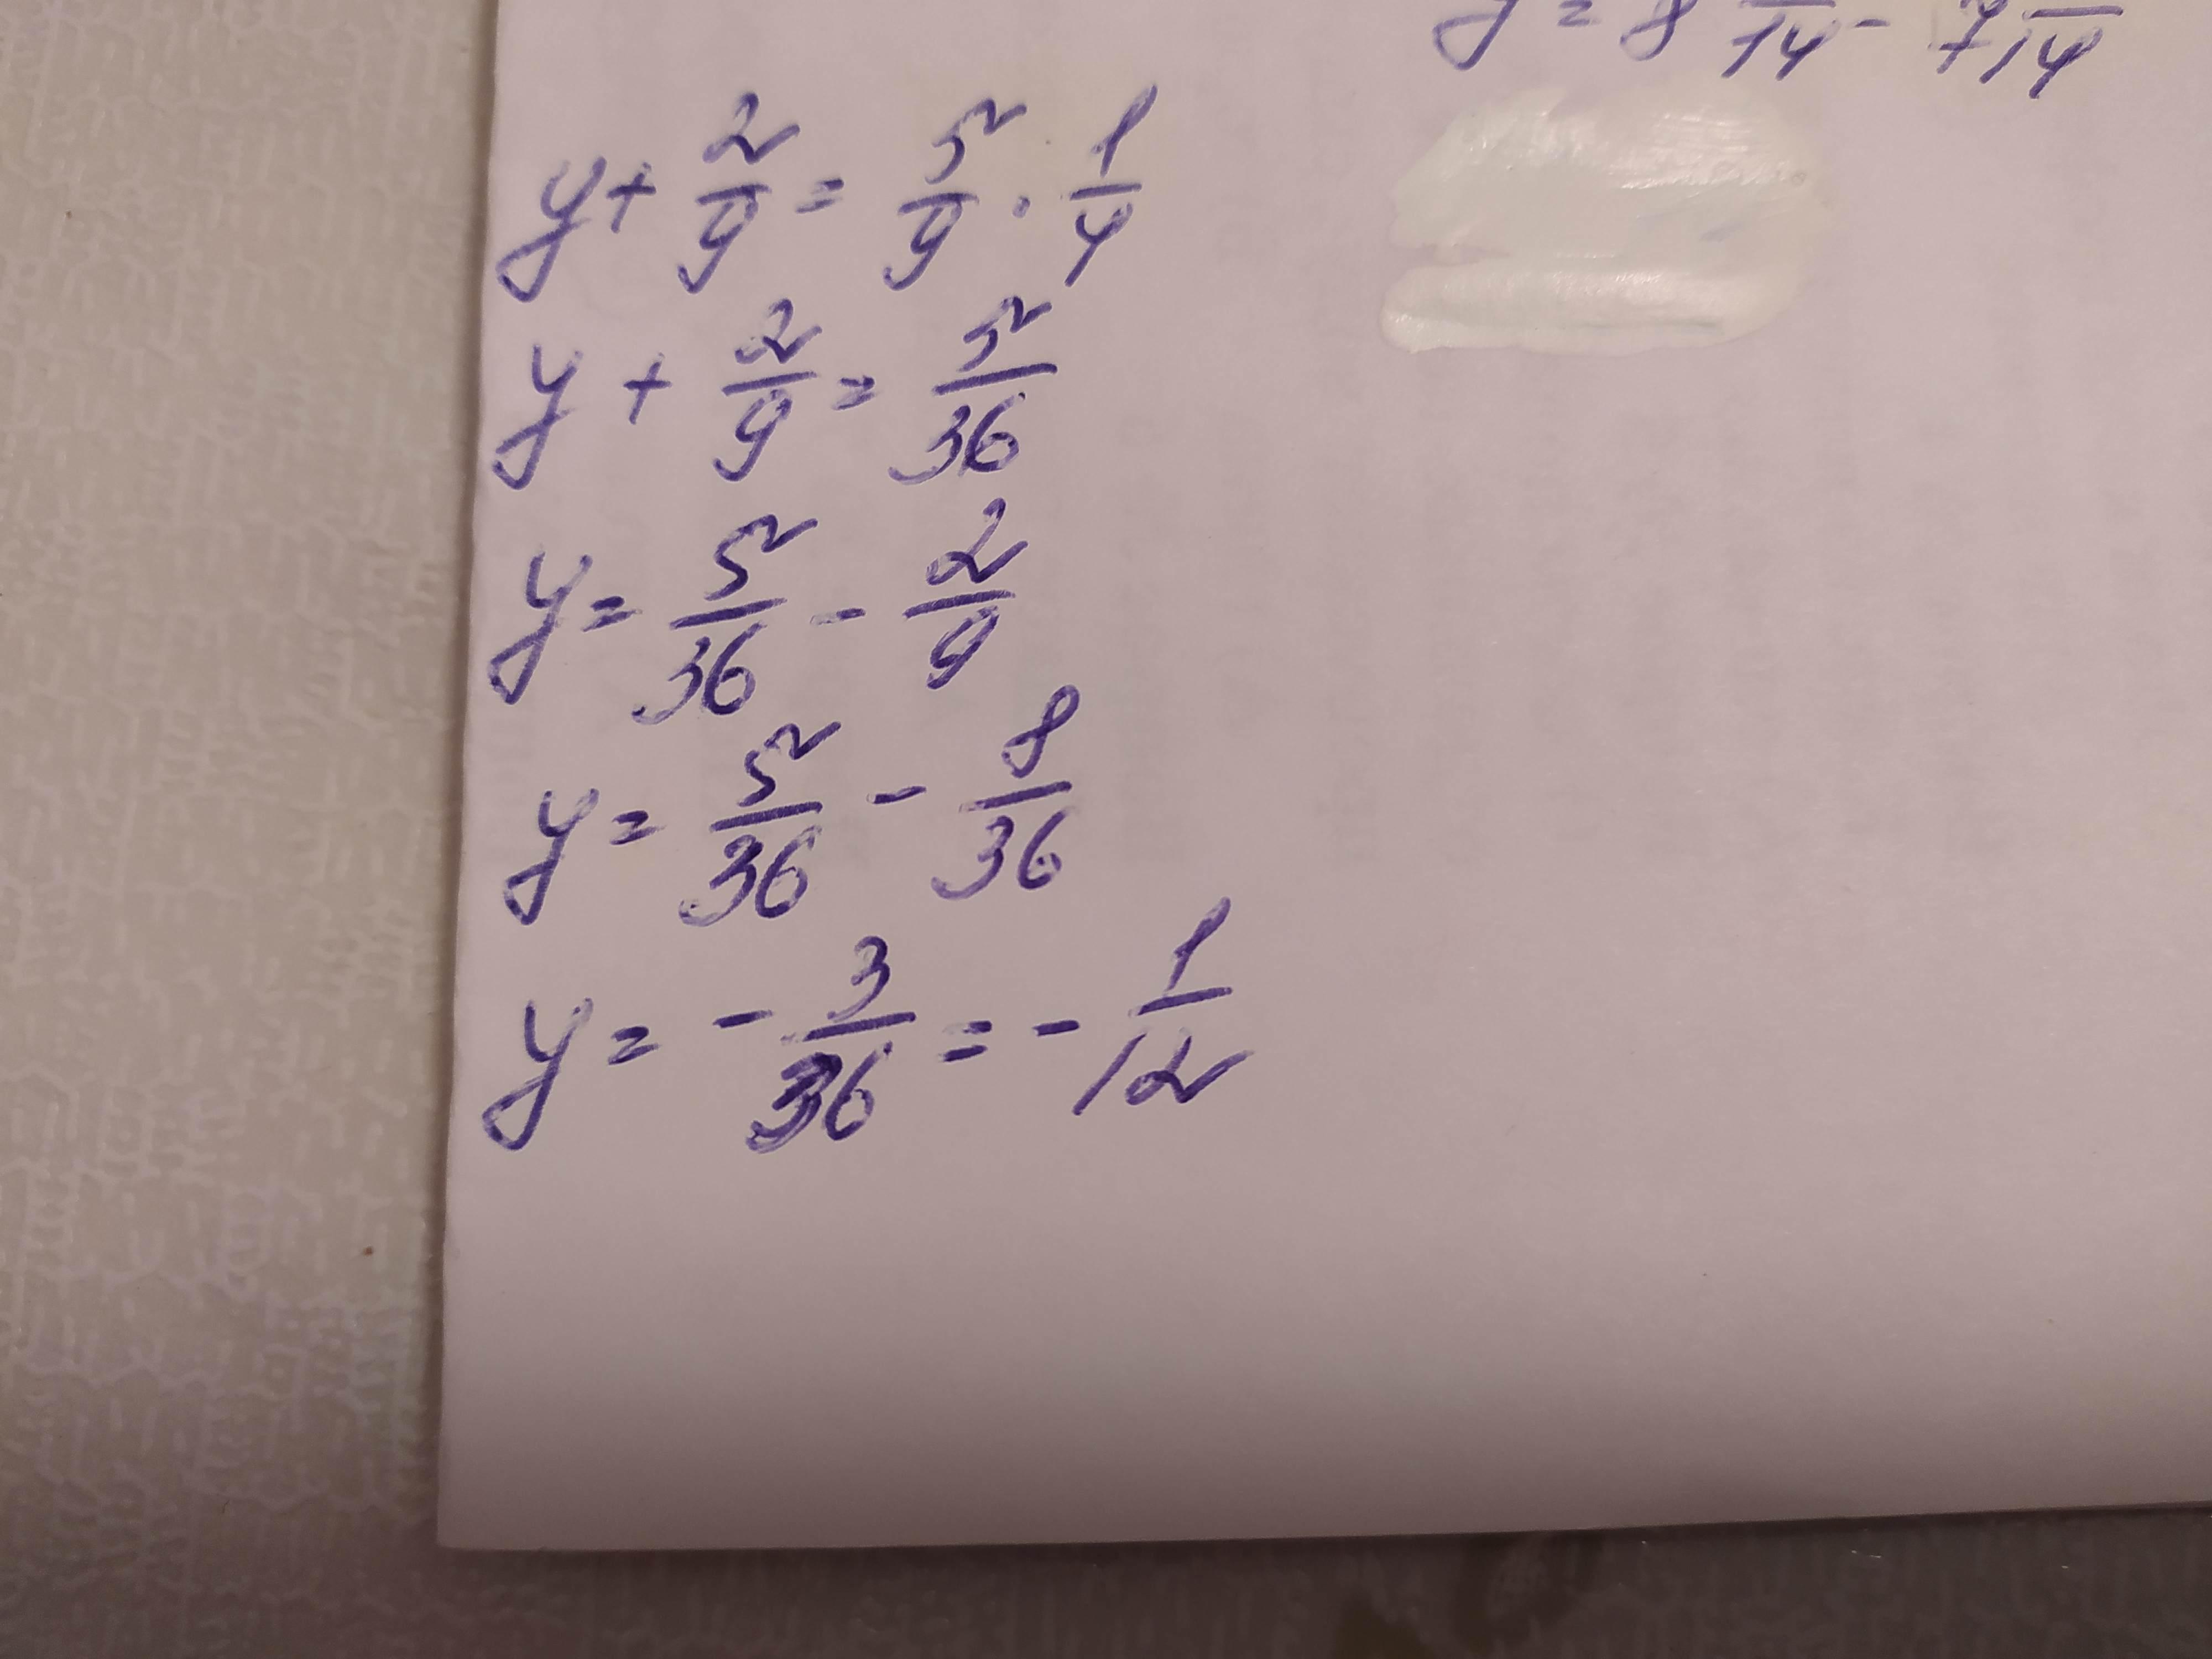 y = 8 /14 - 7 /14
y + 2/9 = 5/9 · 1/4
y + 2/9 = 5/36
y = 5/36 - 2/9
y = 5/36 - 8/36
y = - 3/36 = - 1/12